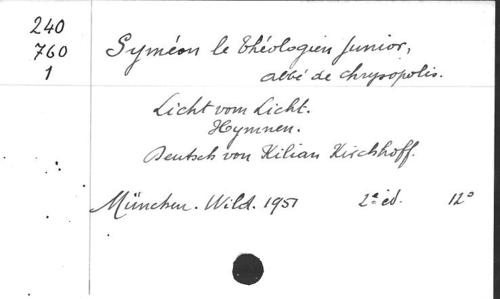 240
760
1
Syméon le Théologien Junior,
abbé de Chrysopolis.
Licht vom Licht.
Hymnen.
Deutsch von Kilian Kirchhoff.
München. Wild. 1951 2e éd. 12°